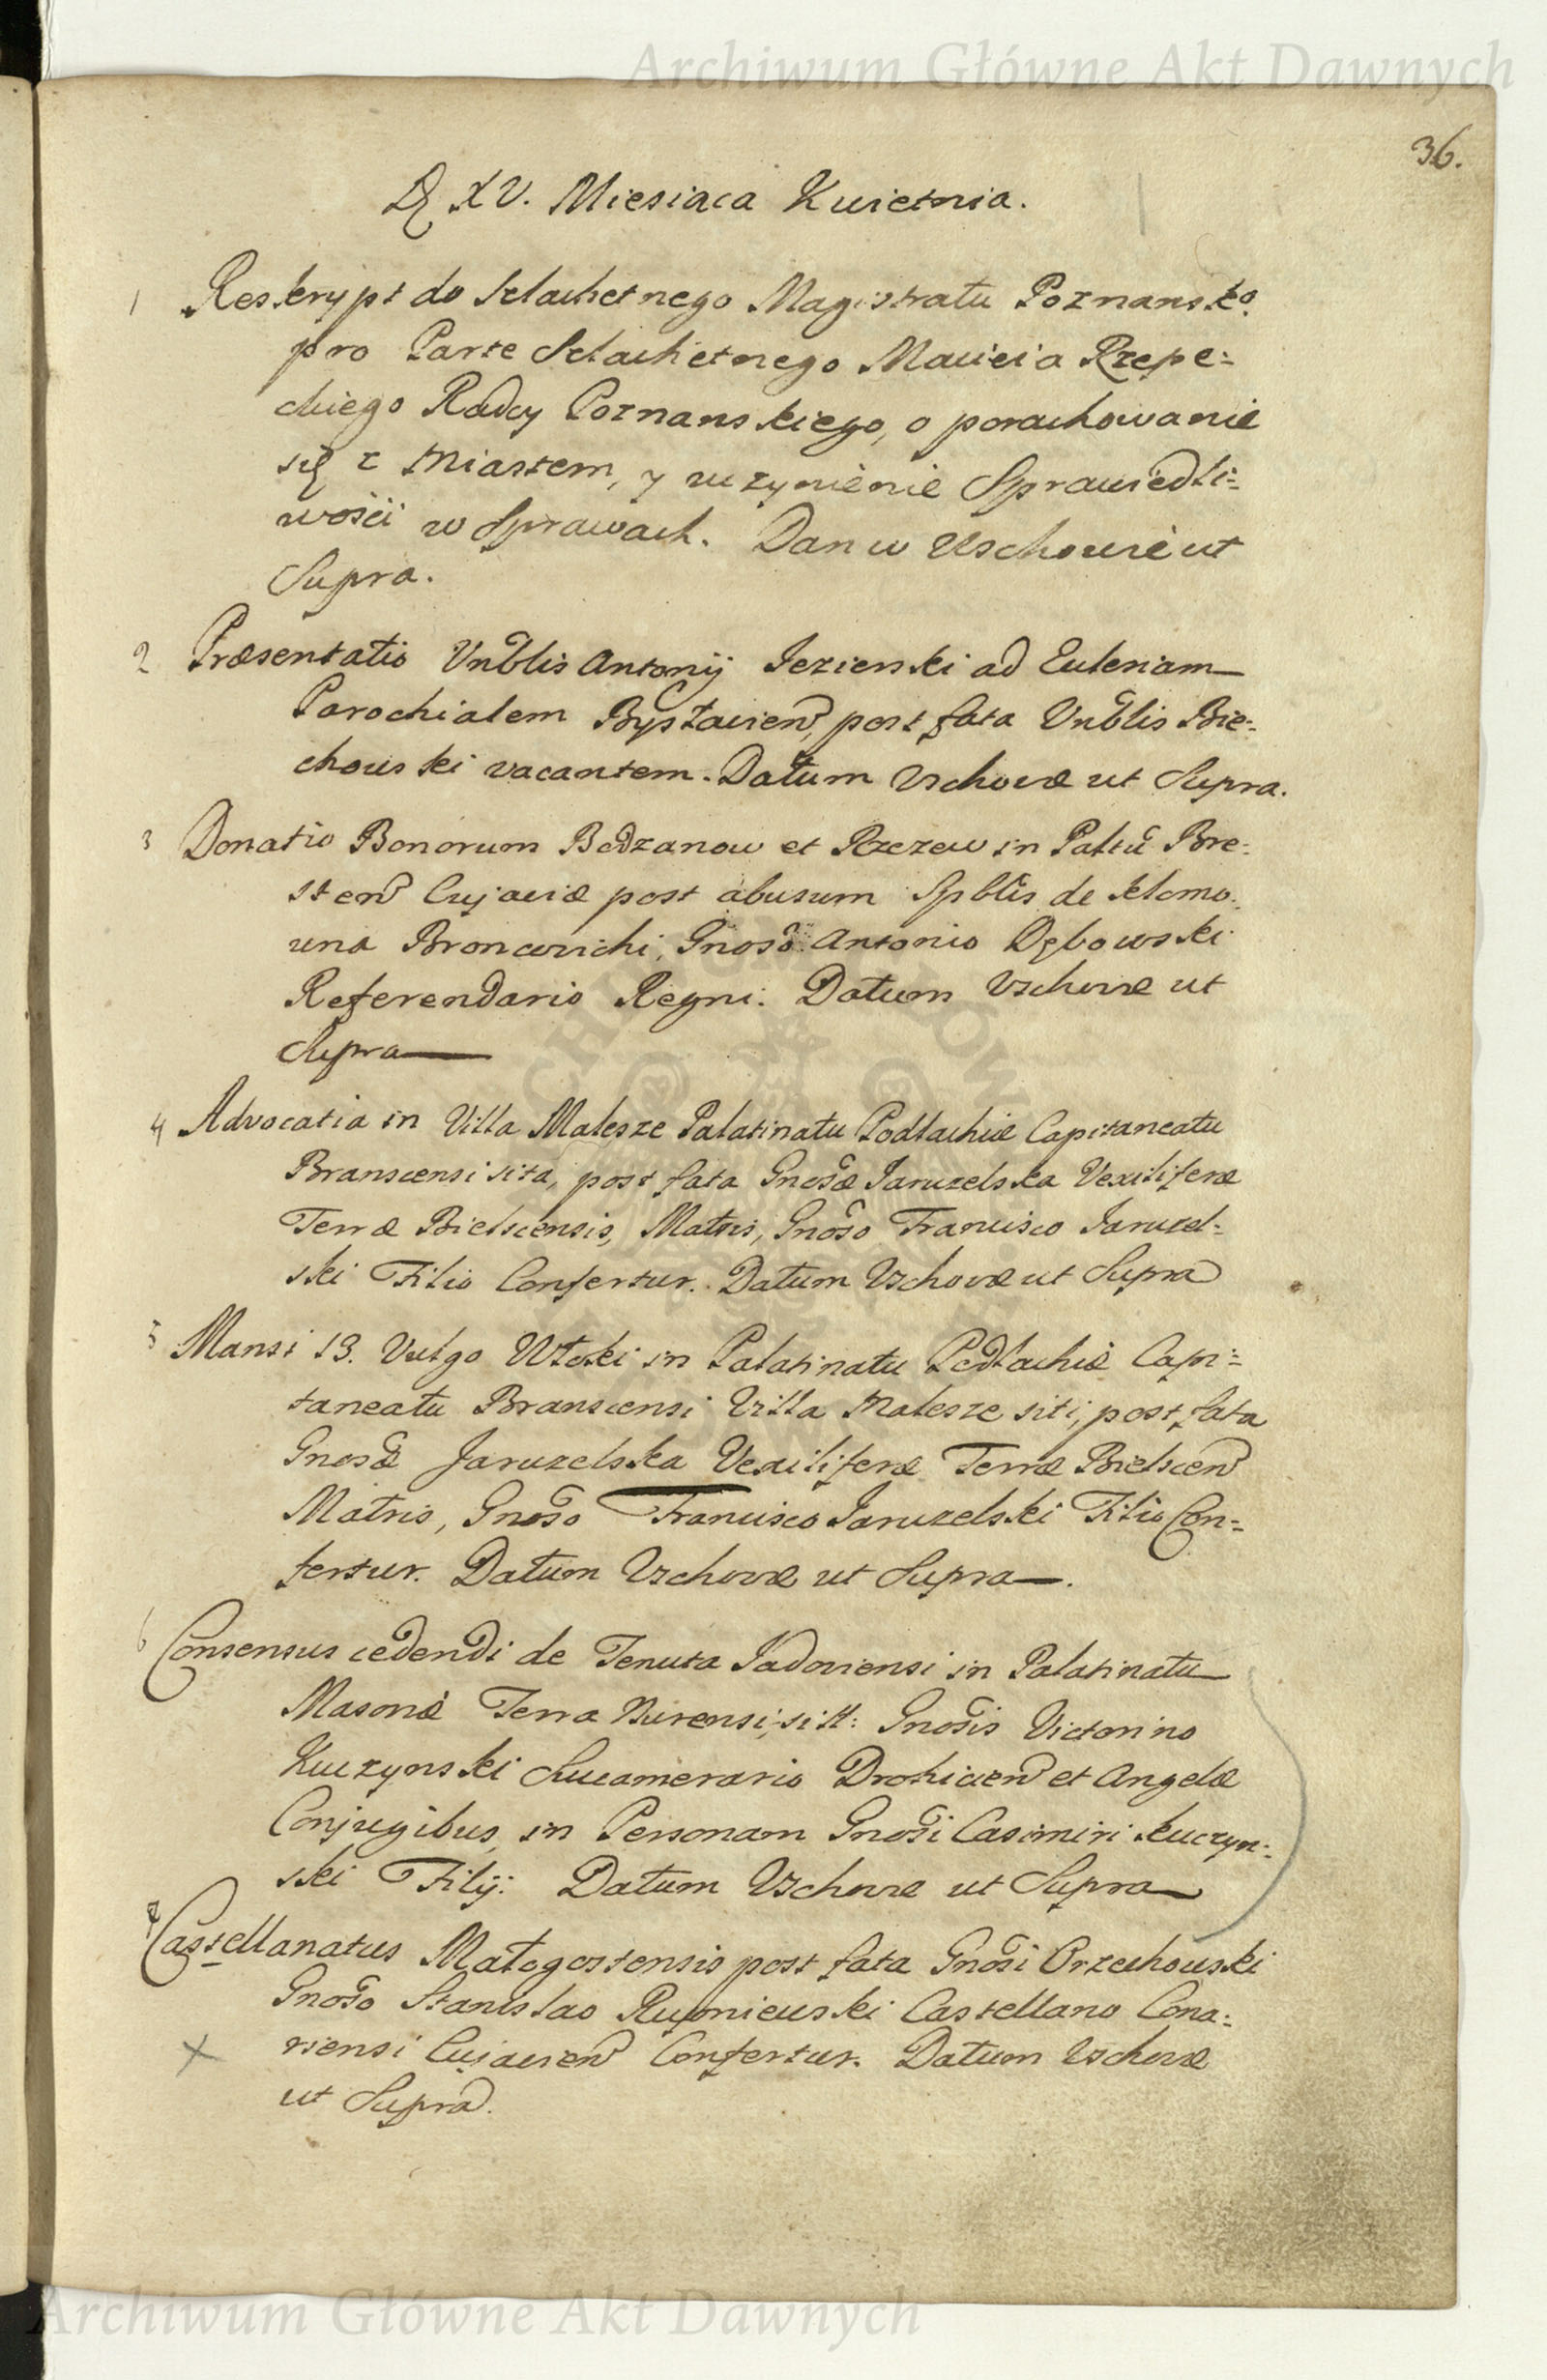 Archiwum Główne Akt Dawnych
36.
D. XV. Miesiaca Kwietnia.
1 Reskrypt do Szlachetnego Magistratu Poznansko.
pro Parte Szlachetnego Macieia Rzepe=
ckiego Radcy Poznanskiego, o porachowanie
się z Miastem, y uczynienie Sprawiedli=
wości w Sprawach. Dan w Wschowie ut
Supra.
2 Præsentatio Vnblis Antonij Jezierski ad Ecclesiam
Parochialem Bysławien, post fata Vnblis Bie=
chowski vacantem. Datum Vschovæ ut Supra.
3 Donatio Bonorum Bodzanow et Rzezew in Palttu Bre=
sten Cujaviæ post abusum Spblis de
Antonio Dębowski
Referendario Regni. Datum Vschovæ ut
Supra
4 Advocatia in Villa Malesze Palatinatu Podlachiæ Capitaneatu
Branscensi sita, post fata Gnosæ Jaruzelska Vexiliferæ
Terræ Bielscensis, Matris, Gnoso Francisco Jaruzel=
ski Filio Confertur. Datum Vschovæ ut Supra
5 Mansi 13. Vulgo Włoki in Palatinatu Podlachiæ Capi=
taneatu Branscensi Villa Malesze siti, post fata
Gnosæ Jaruzelska Vexiliferæ Terræ Bielscen
Matris, Gnoso Francisco Jaruzelski Filio Con=
fertur. Datum Vschovæ ut Supra.
6 Consensus cedendi de Tenuta Jadoviensi in Palatinatu
Masoviæ Terra Nurensi, sitt: Gnosis Victorino
Kuczynski Succamerario Drohicien et Angelæ
Conjugibus, in Personam Gnosi Casimiri Kuczyn=
ski Filij. Datum Vschovæ ut Supra
7 Castellanatus Małogostensis post fata Gnosi Orzechowski
Gnoso Stanislao Rupniewski Castellano Cona=
riensi Cujavien Confertur. Datum Vschovæ
ut Supra.
Archiwum Główne Akt Dawnych